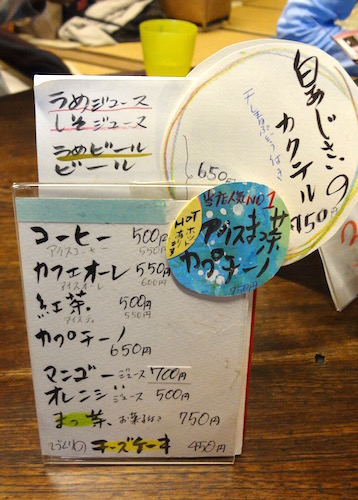 うめジュース
しそジュース
うめビール
ビール
650円
白あじさいの
カクテル
750円
干しぶどう付き
当店人気NO1
HOT
ホット
あります
アイスまっ茶
カプチーノ
750円
コーヒー 500円
アイスコーヒー 550円
カフェオーレ 550円
アイスオーレ 600円
紅茶 500円
アイスティ 550円
カプチーノ
650円
マンゴージュース 700円
オレンジジュース 500円
まっ茶、お菓子付き 750円
てづくりの チーズケーキ 450円